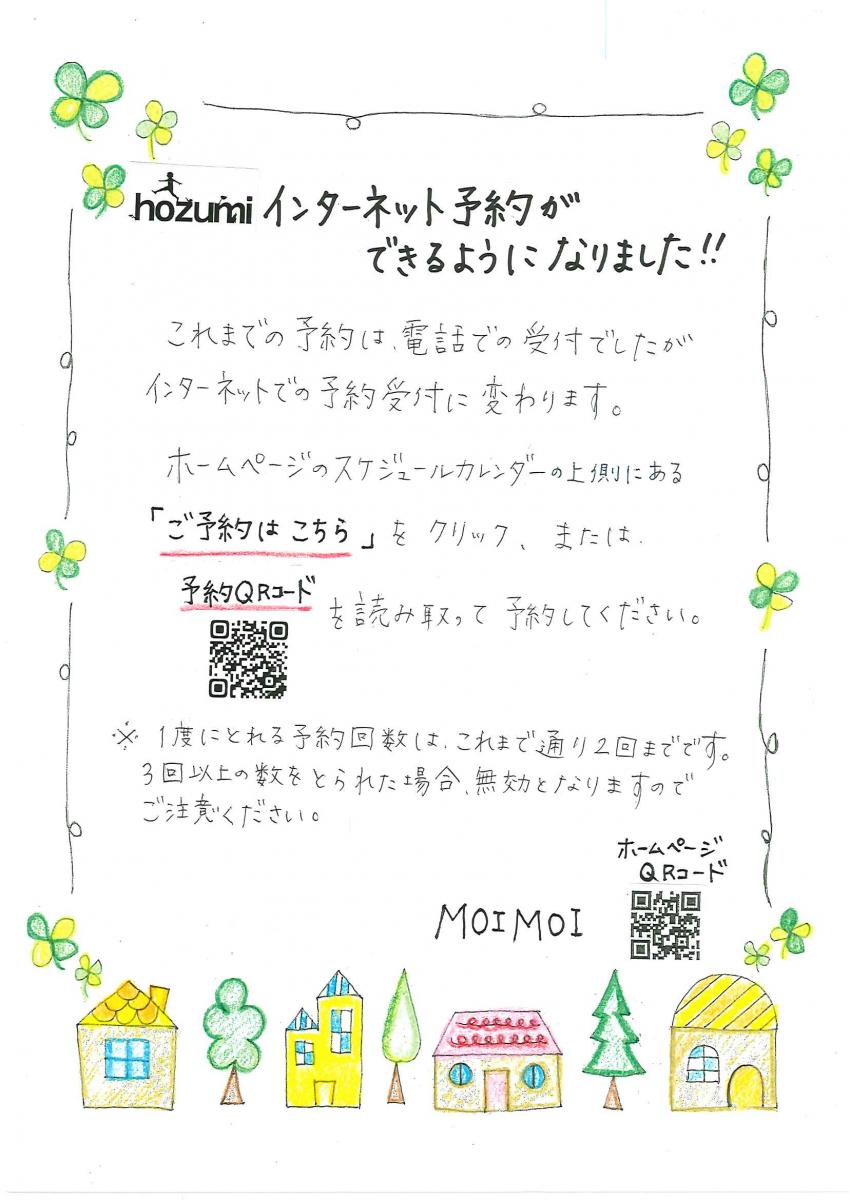 hozumi インターネット予約が
できるようになりました!!
これまでの予約は、電話での受付でしたが
インターネットでの予約受付に変わります。
ホームページのスケジュールカレンダーの上側にある
「ご予約はこちら」をクリック、または
予約QRコード
を読み取って予約してください。
※ 1度にとれる予約回数は、これまで通り2回までです。
3回以上の数をとられた場合、無効となりますので
ご注意ください。
ホームページ
QRコード
MOIMOI